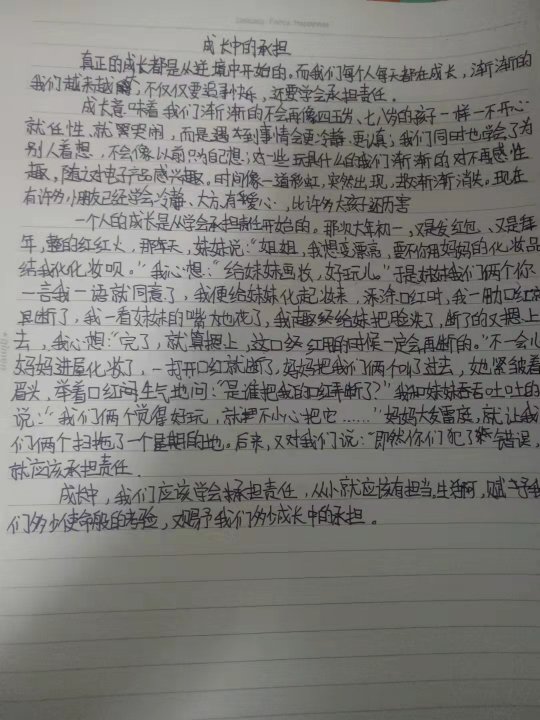 成长中的承担
真正的成长都是从逆境中开始的。而我们每个人每天都在成长，渐渐的
我们越来越，不仅仅要追事快乐，还要学会承担责任。
成长意味着我们渐渐的不会再像四五岁、七八岁的孩子一样一不开心
就任性、就哭闹，而是遇到事情会更冷静、更认真；我们同时也学会了为
别人着想，不会像以前只为自己想；对一些玩具什么的我们渐渐的对不再感性
趣，随之对电子产品感兴趣。时间像一道彩虹，突然出现，出来渐渐消失。现在
有许多小朋友已经学会冷静、大方、有爱心，比许多大孩子还历害
一个人的成长是从学会承担责任开始的。那次大年初一，又是发红包、又是拜
年，整的红红火，那天，妹妹说：“姐姐，我想变漂亮，要不你用妈妈的化妆品
给我化化妆呗。”我心想：“给妹妹画妆，好玩儿。”于是妹妹我们两个你
一言我一语就同意了，我便给妹妹化起妆来，涂口红时，我一用力口红就
断了，我一看妹妹的嘴也花了，我赶紧给妹把脸洗了，断了的又摁上
去，我心想：“完了，就算摁上，这口红用的时候一定会再断的。”不一会儿
妈妈进屋化妆了，一打开口红就断了，妈妈把我们两个叫了过去，她紧皱着
眉头，举着口红闷生气地问：“是谁把我的口红弄断了？”我和妹妹吞吞吐吐的
说：“我们两个觉得好玩，就把不小心把它……”妈妈大发雷庭，就让我
们两个扫拖了一个星期的地。后来，又对我们说：“即然你们犯了错误，
就应该承担责任.
成长中，我们应该学会承担责任，从小就应该有担当.生活啊，赋予我
们多少使命般的考验，又赐予我们多少成长中的承担。